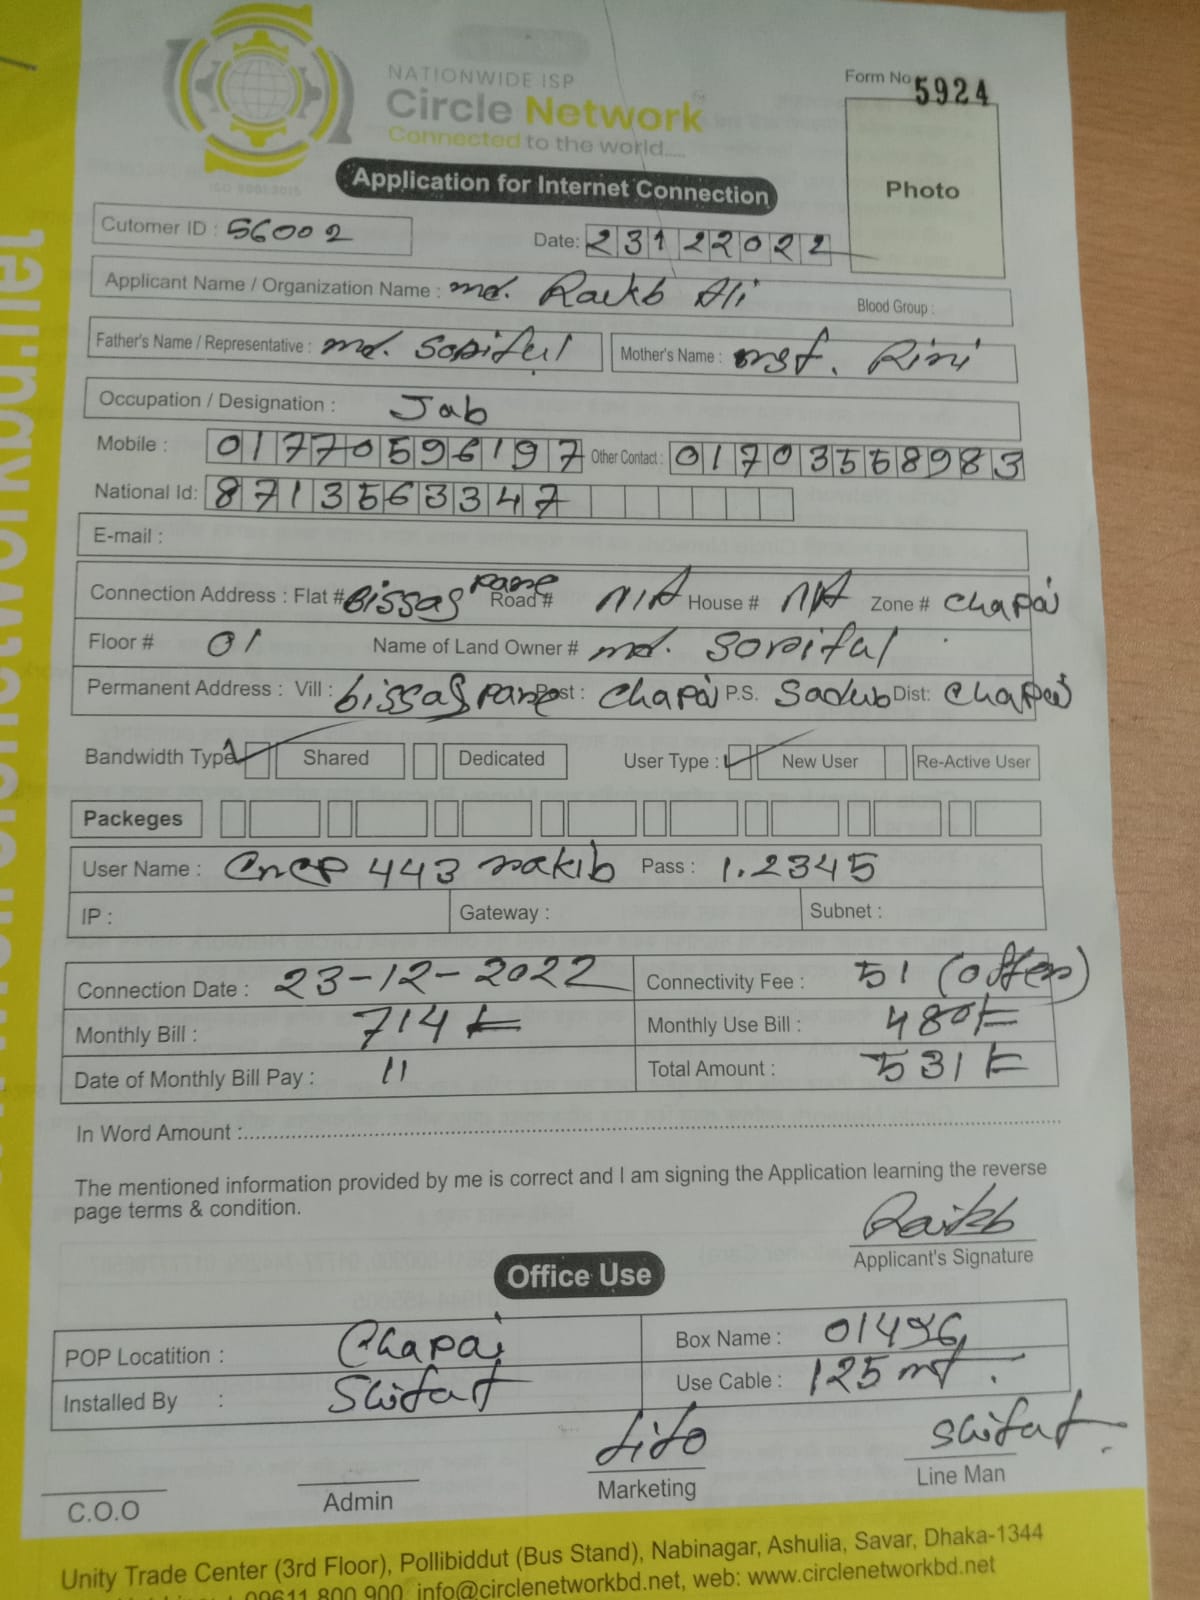 NATIONWIDE ISP
Circle Network
Connected to the world.....
ISO 9001:2015
Form No 5924
Photo
Application for Internet Connection
Cutomer ID : 56002
Date: 23122022
Applicant Name / Organization Name : md. Raikb Ali Blood Group :
Father's Name / Representative : md. Soriful Mother's Name : mst. Rini
Occupation / Designation : Jab
Mobile : 01770596197 Other Contact : 01703558983
National Id: 8713563347
E-mail :
Connection Address : Flat # Bissas pane Road # N/A House # N/A Zone # Chapai
Floor # 01 Name of Land Owner # md. Soriful
Permanent Address : Vill : bissas pane Post : Chapai P.S. Sadub Dist: Chapai
Bandwidth Type Shared Dedicated User Type : New User Re-Active User
Packeges
User Name : CNCP 443 rakib Pass : 1.2345
IP : Gateway : Subnet :
Connection Date : 23-12-2022 Connectivity Fee : 51 (offer)
Monthly Bill : 714 Monthly Use Bill : 480
Date of Monthly Bill Pay : 11 Total Amount : 531
In Word Amount :
The mentioned information provided by me is correct and I am signing the Application learning the reverse
page terms & condition.
Raikb
Applicant's Signature
Office Use
POP Locatition : Chapai Box Name : 01496
Installed By : Shifat Use Cable : 125 mt.
Shifat
C.O.O Admin Marketing Line Man
Unity Trade Center (3rd Floor), Pollibiddut (Bus Stand), Nabinagar, Ashulia, Savar, Dhaka-1344
09611 800 900, info@circlenetworkbd.net, web: www.circlenetworkbd.net